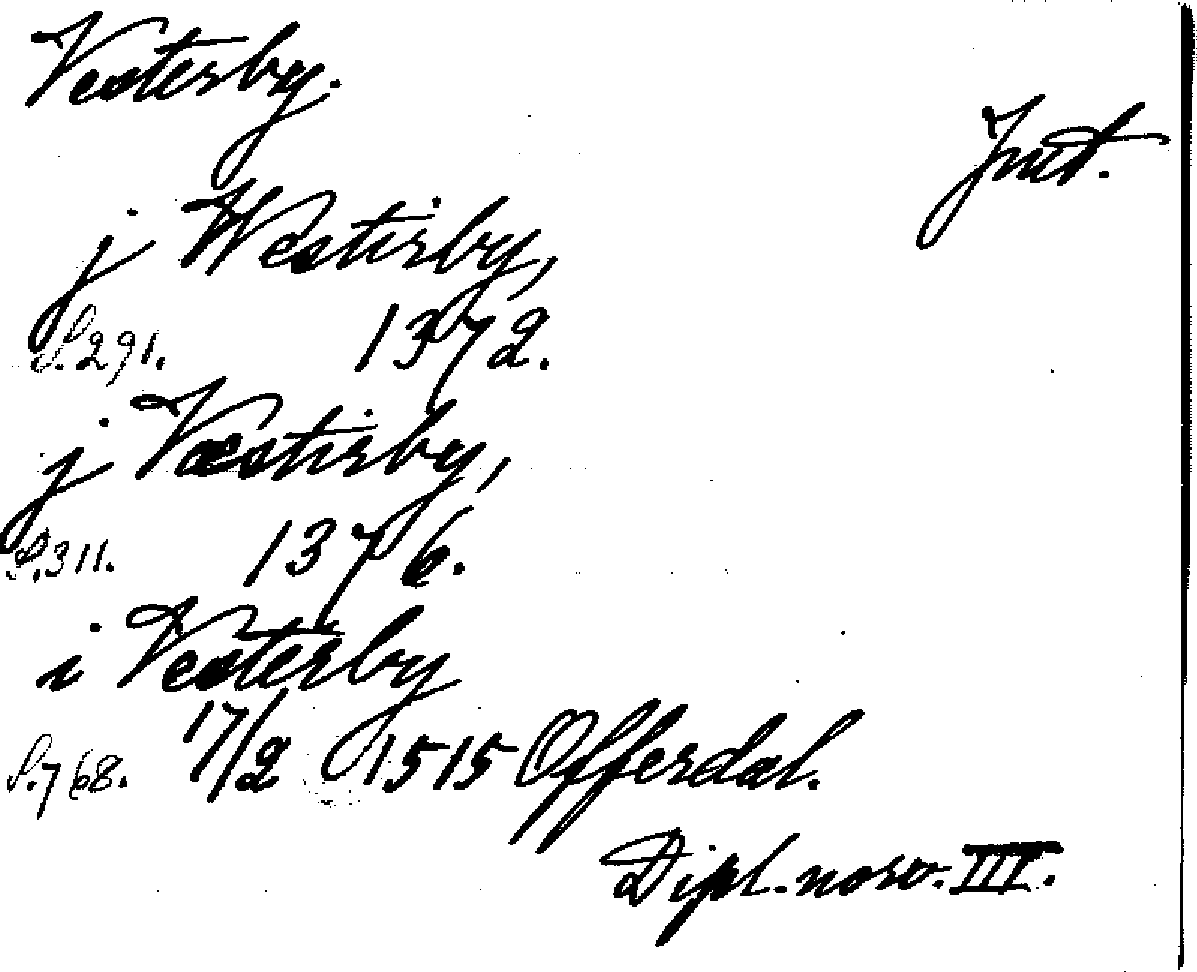 Vesterby.
Jmt.
j Westirby,
S. 291. 1372.
j Væstirby,
S. 311. 1376.
i Vesterby
S. 768. 17/2 1515 Offerdal.
Dipl. norv. III.